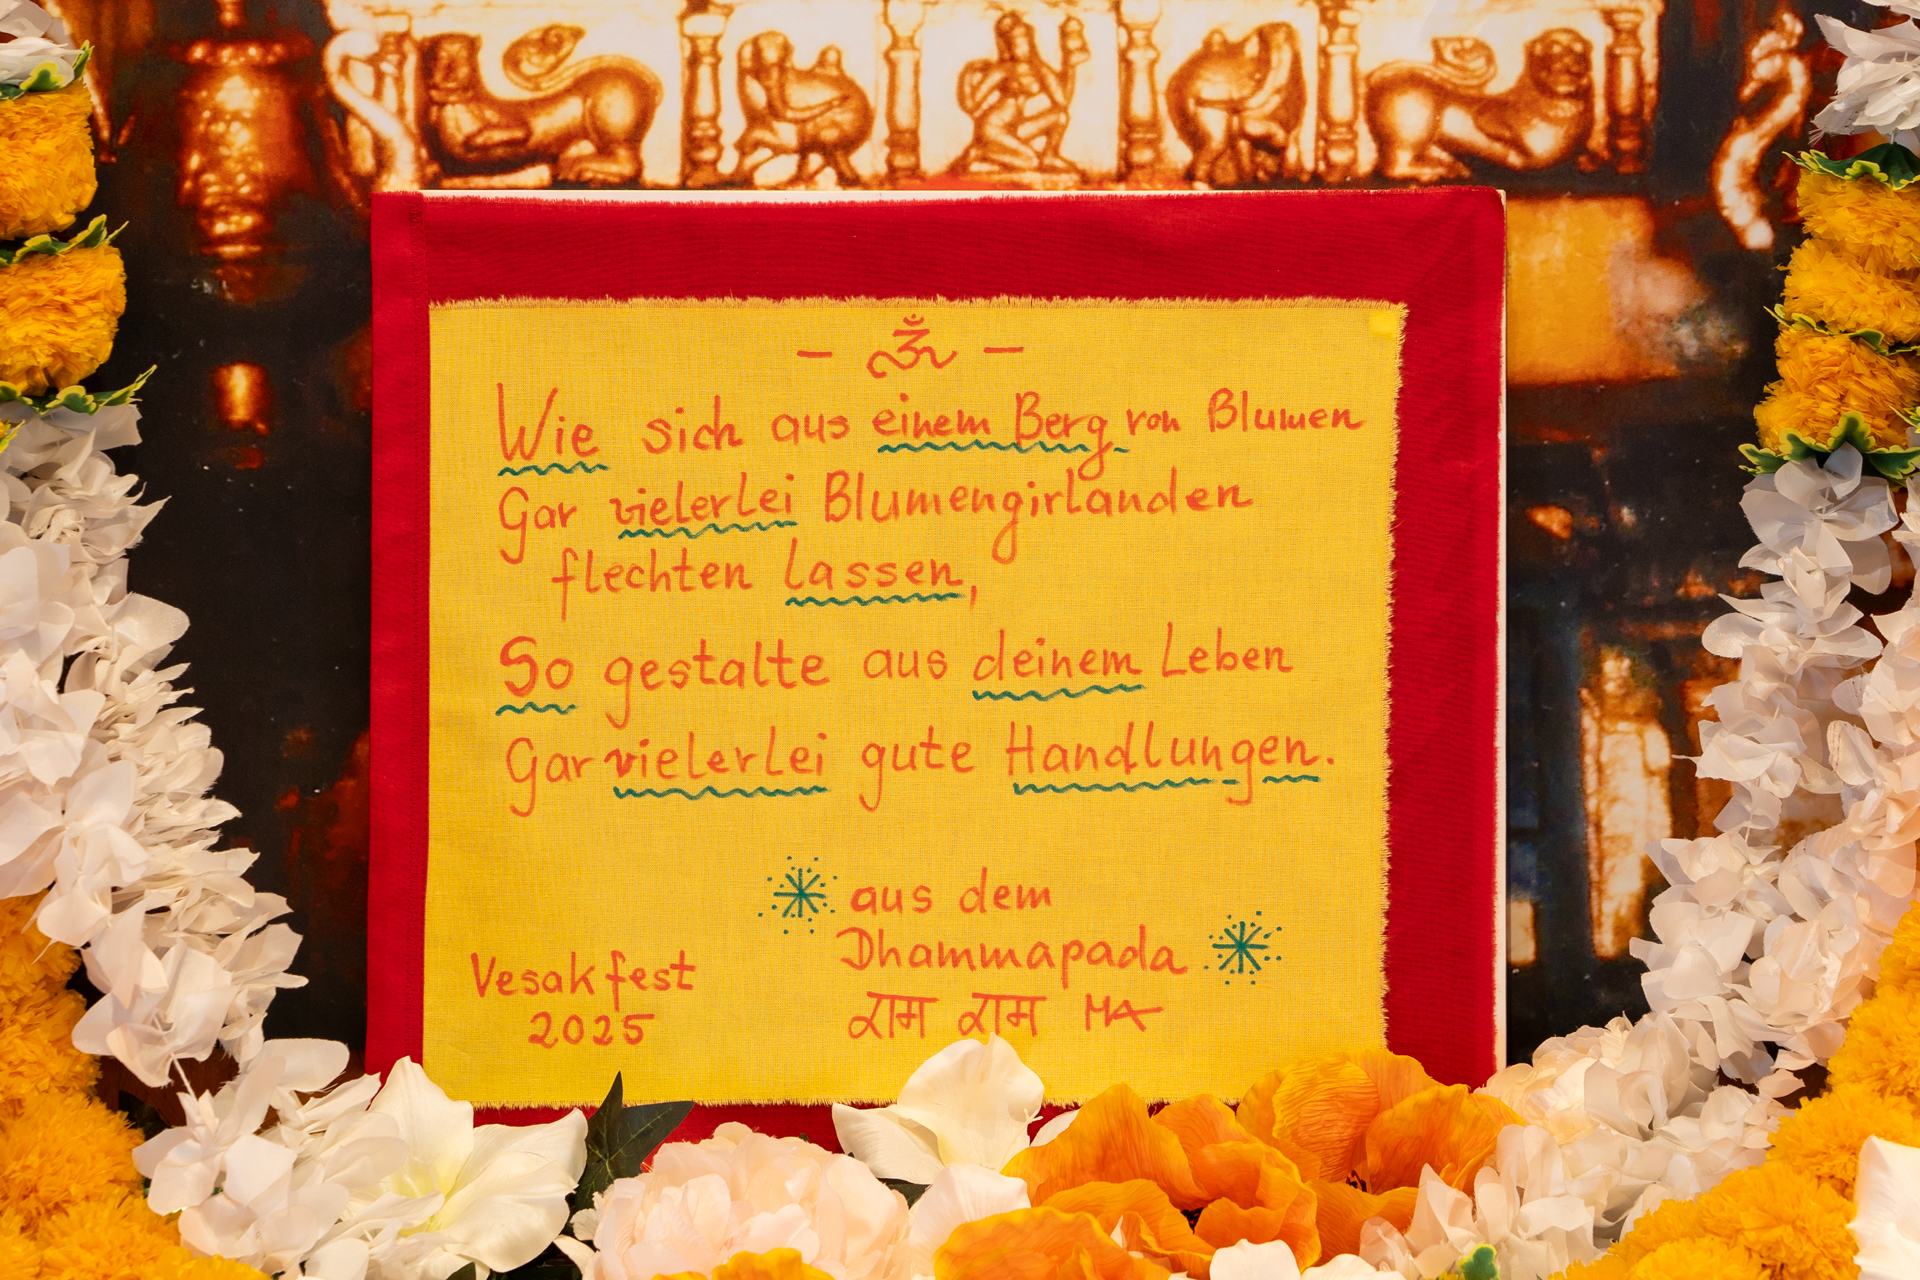 - ॐ -
Wie sich aus einem Berg von Blumen
Gar vielerlei Blumengirlanden
flechten lassen,
So gestalte aus deinem Leben
Gar vielerlei gute Handlungen.
aus dem
Dhammapada
राम राम MA
Vesakfest
2025